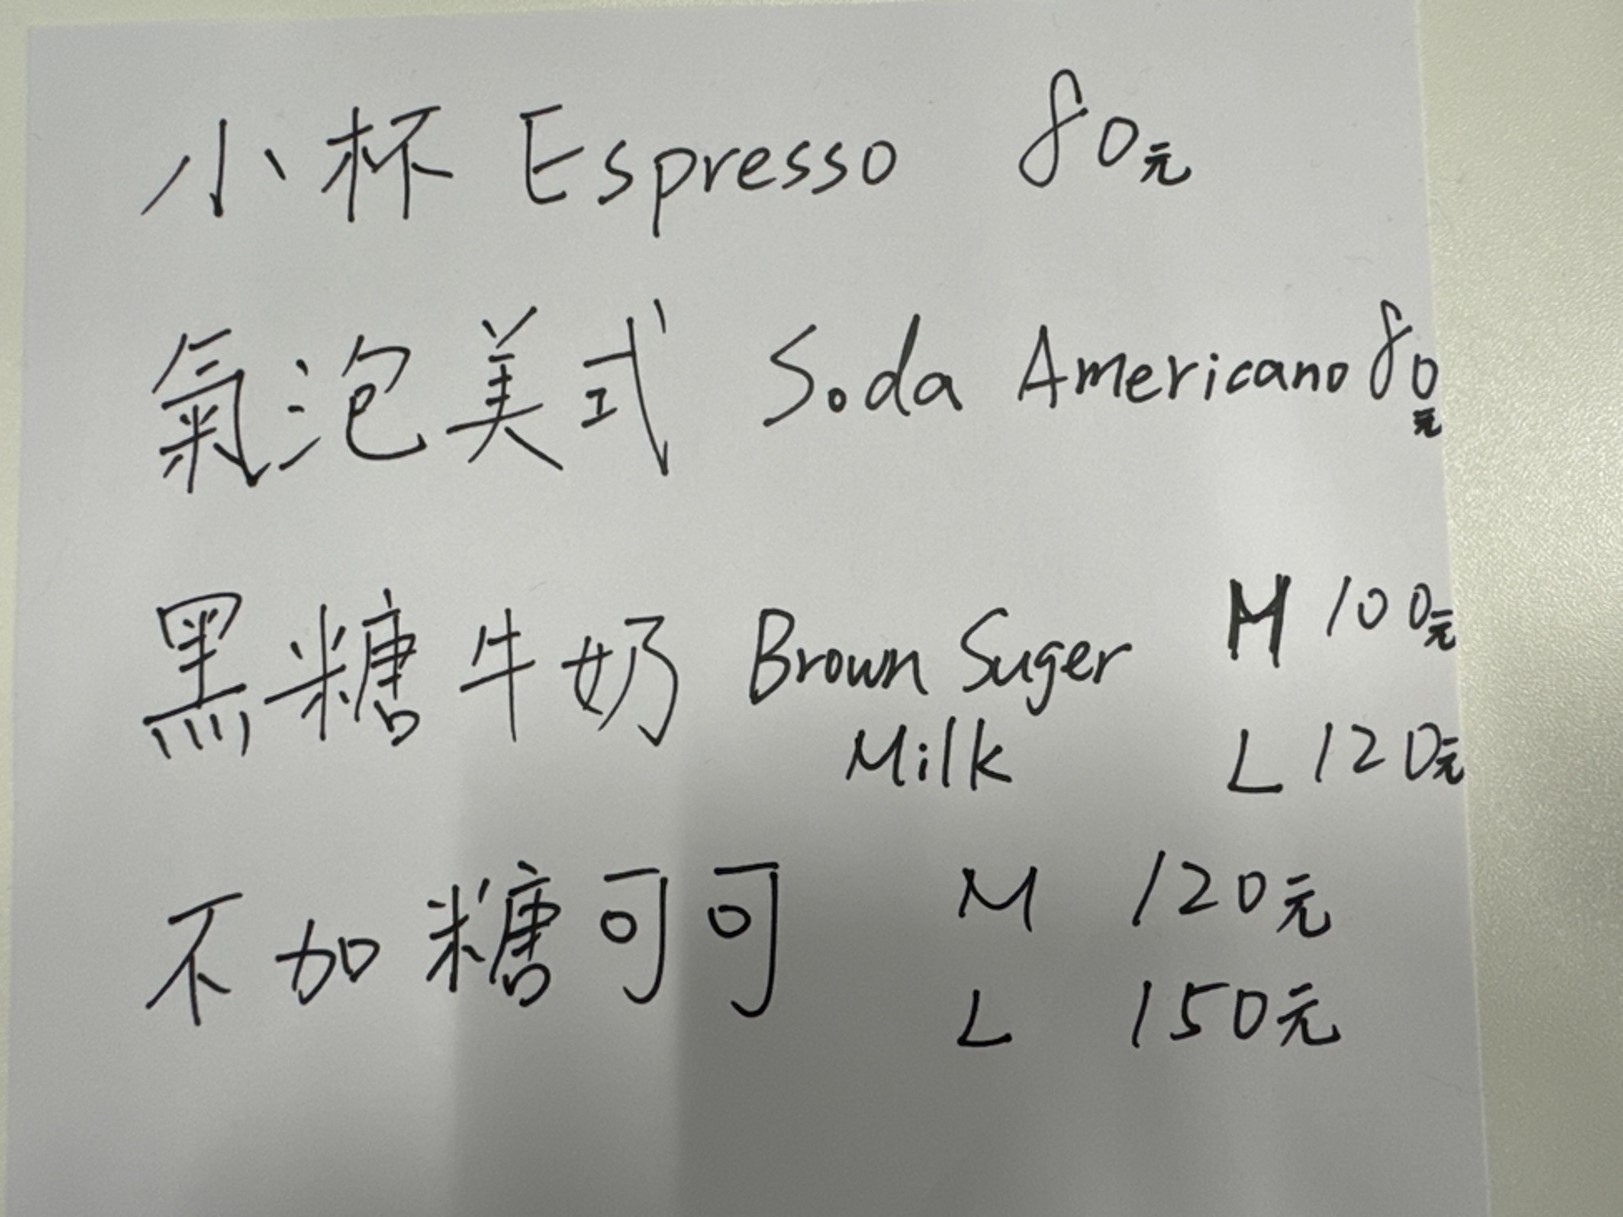 小杯 Espresso 80元
氣泡美式 Soda Americano 80元
黑糖牛奶 Brown Suger M 100元
Milk L 120元
不加糖可可 M 120元
L 150元